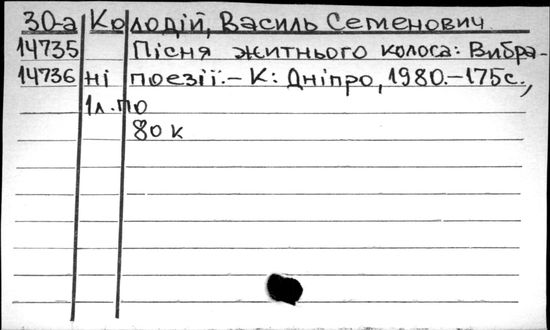 30-а Колодій, Василь Семенович
14735 Пісня житнього колоса: Вибра-
14736 ні поезії.- К: Дніпро, 1980.-175с.,
1л.по
80к